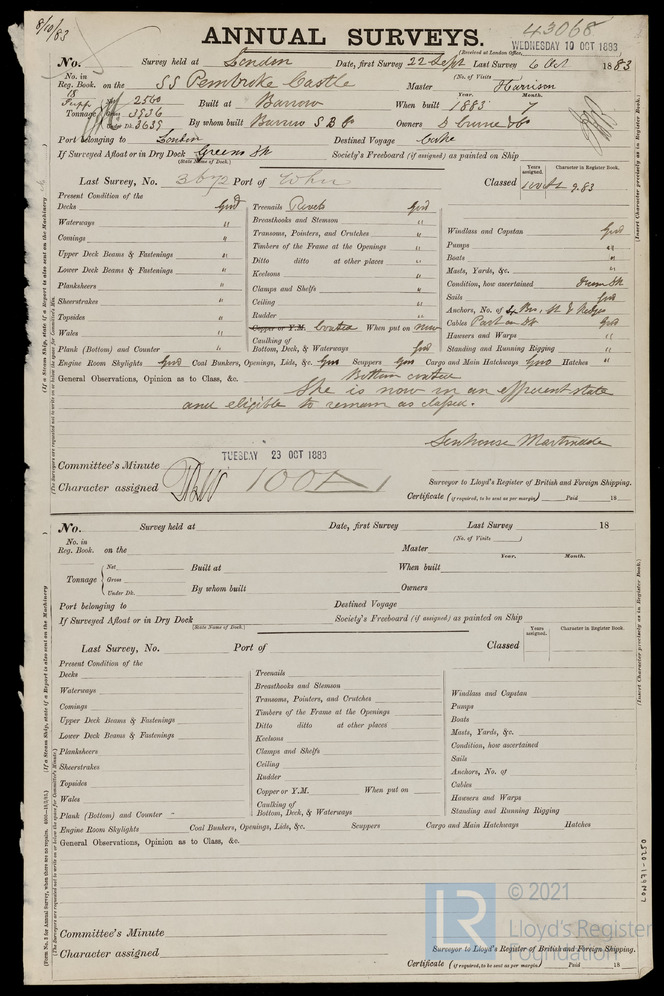 8/10/83
43068
ANNUAL SURVEYS.
(Received at London Office,
WEDNESDAY 10 OCT 1883
No. Survey held at London Date, first Survey 22 Sept Last Survey 6 Oct 1883
No. in Reg. Book. on the SS Pembroke Castle Master Harrison
(No. of Visits
Tonnage Net 2560 Built at Barrow When built Year. 1883 Month. 7
Gross 3936
Under Dk. 3639 By whom built Barrow S B Co Owners D Currie & Co
Port belonging to London Destined Voyage Cape
If Surveyed Afloat or in Dry Dock Greens Dk Society's Freeboard (if assigned) as painted on Ship
(State Name of Dock.)
Last Survey, No. Port of Classed
Years assigned. Character in Register Book.
9.83
Present Condition of the
Decks Good Treenails Rivets Good
Waterways " Breasthooks and Stemson " Windlass and Capstan Good
Comings " Transoms, Pointers, and Crutches " Pumps "
Upper Deck Beams & Fastenings " Timbers of the Frame at the Openings " Boats "
Lower Deck Beams & Fastenings " Ditto ditto at other places " Masts, Yards, &c. "
Planksheers " Keelsons " Condition, how ascertained from Dk
Sheerstrakes " Clamps and Shelfs " Sails Good
Topsides " Ceiling " Anchors, No. of
Wales " Rudder " Cables Part on Dk Good
Copper or Y.M. Coated When put on New Hawsers and Warps "
Plank (Bottom) and Counter " Caulking of Bottom, Deck, & Waterways Good Standing and Running Rigging "
Engine Room Skylights Good Coal Bunkers, Openings, Lids, &c. Good Scuppers Good Cargo and Main Hatchways Good Hatches "
General Observations, Opinion as to Class, &c. Bottom coated
She is now in an efficient state
and eligible to remain as classed.
Senhouse Martindale
TUESDAY 23 OCT 1883
Committee's Minute
Character assigned 100A1
Surveyor to Lloyd's Register of British and Foreign Shipping.
Certificate (if required, to be sent as per margin) Paid 18
No. Survey held at Date, first Survey Last Survey 18
(No. of Visits )
No. in Reg. Book. on the Master
Year. Month.
Tonnage Net Built at When built
Gross
Under Dk. By whom built Owners
Port belonging to Destined Voyage
If Surveyed Afloat or in Dry Dock Society's Freeboard (if assigned) as painted on Ship
(State Name of Dock.)
Last Survey, No. Port of Classed
Years assigned. Character in Register Book.
Present Condition of the
Decks Treenails
Waterways Breasthooks and Stemson Windlass and Capstan
Comings Transoms, Pointers, and Crutches Pumps
Upper Deck Beams & Fastenings Timbers of the Frame at the Openings Boats
Lower Deck Beams & Fastenings Ditto ditto at other places Masts, Yards, &c.
Planksheers Keelsons Condition, how ascertained
Sheerstrakes Clamps and Shelfs Sails
Topsides Ceiling Anchors, No. of
Wales Rudder Cables
Copper or Y.M. When put on Hawsers and Warps
Plank (Bottom) and Counter Caulking of Bottom, Deck, & Waterways Standing and Running Rigging
Engine Room Skylights Coal Bunkers, Openings, Lids, &c. Scuppers Cargo and Main Hatchways Hatches
General Observations, Opinion as to Class, &c.
Committee's Minute
Character assigned
Surveyor to Lloyd's Register of British and Foreign Shipping.
Certificate (if required, to be sent as per margin.) Paid 18
(Insert Character precisely as in Register Book.)
(If a Steam Ship, state if a Report is also sent on the Machinery
LON971-0250
LR
© 2021
Lloyd's Register
Foundation